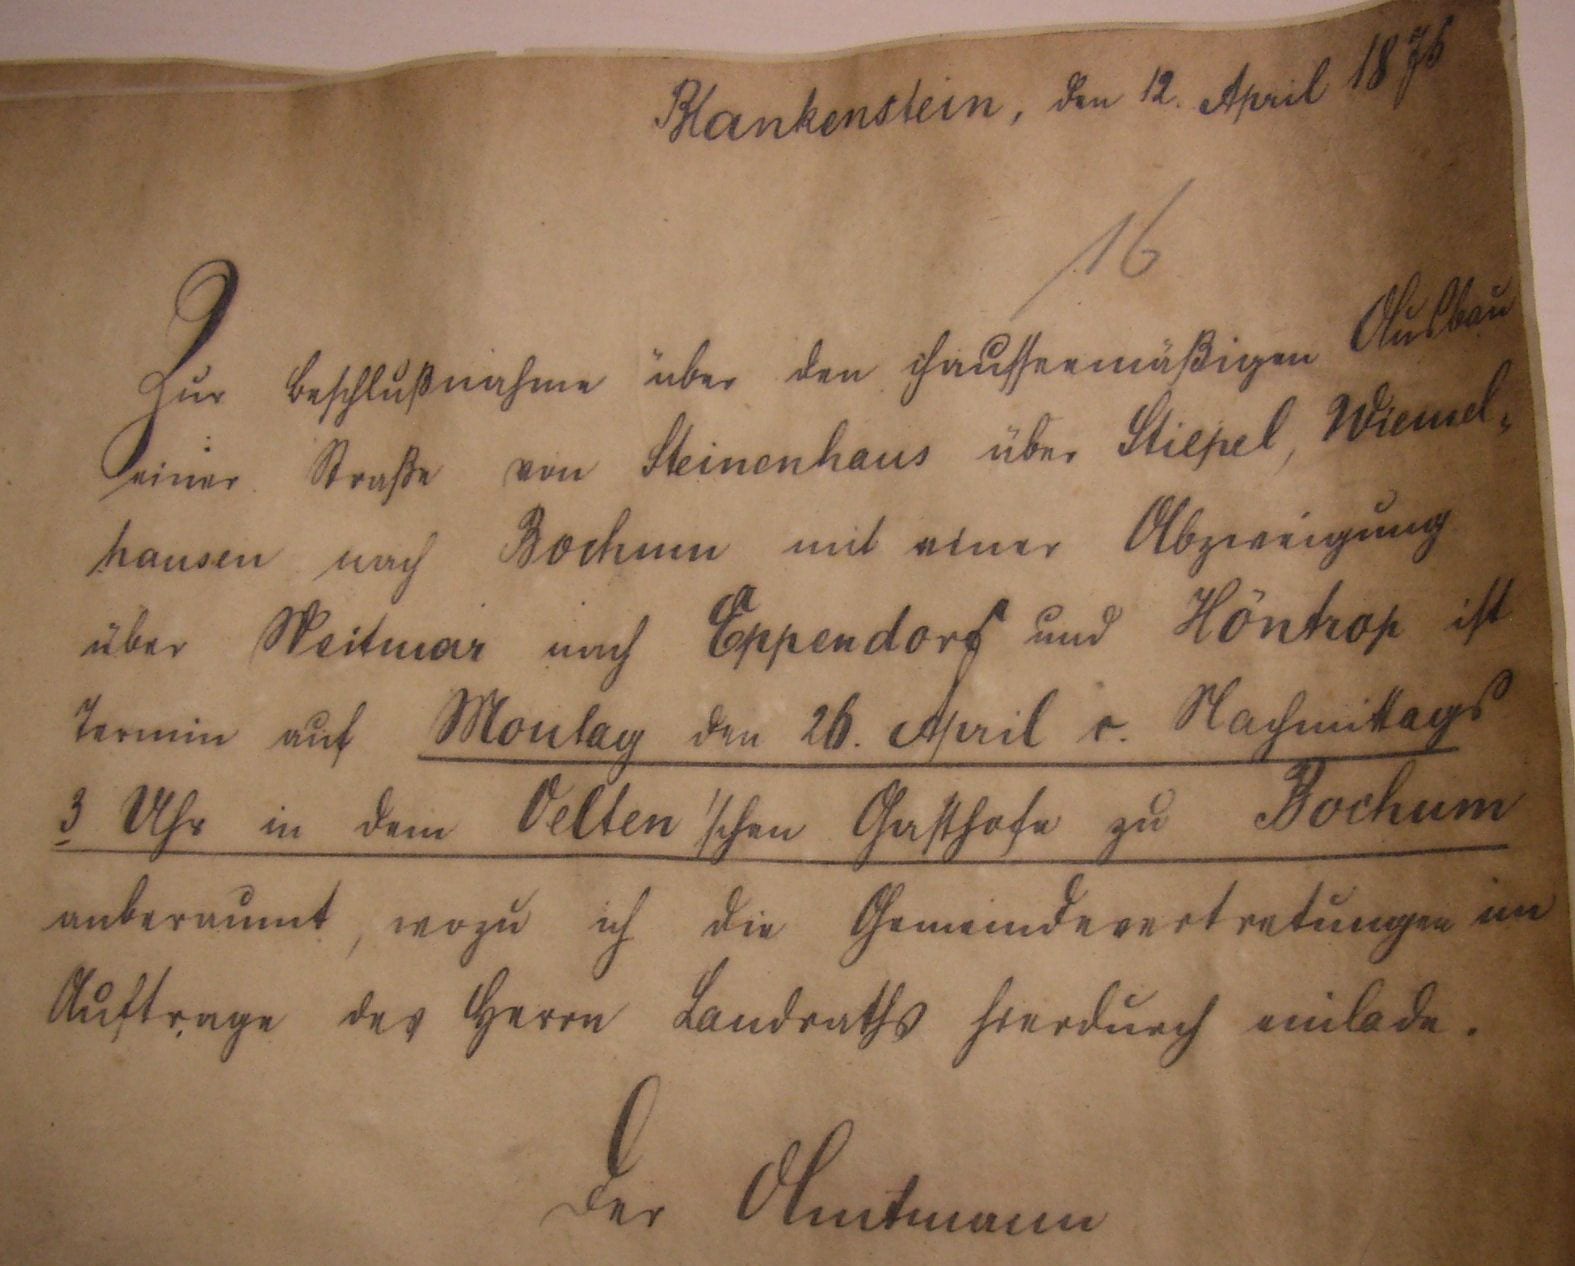 Blankenstein, den 12. April 1875
16
Zur Beschlußnahme über den chausseemäßigen Ausbau
einer Straße von Steinenhaus über Stiepel, Wiemel-
hausen nach Bochum mit einer Abzweigung
über Weitmar nach Eppendorf und Höntrop ist
Termin auf Montag den 26. April c. Nachmittags
3 Uhr in dem Oelten'schen Gasthofe zu Bochum
anberaumt, wozu ich die Gemeindevertretungen im
Auftrage des Herrn Landraths hierdurch einlade.
Der Amtmann